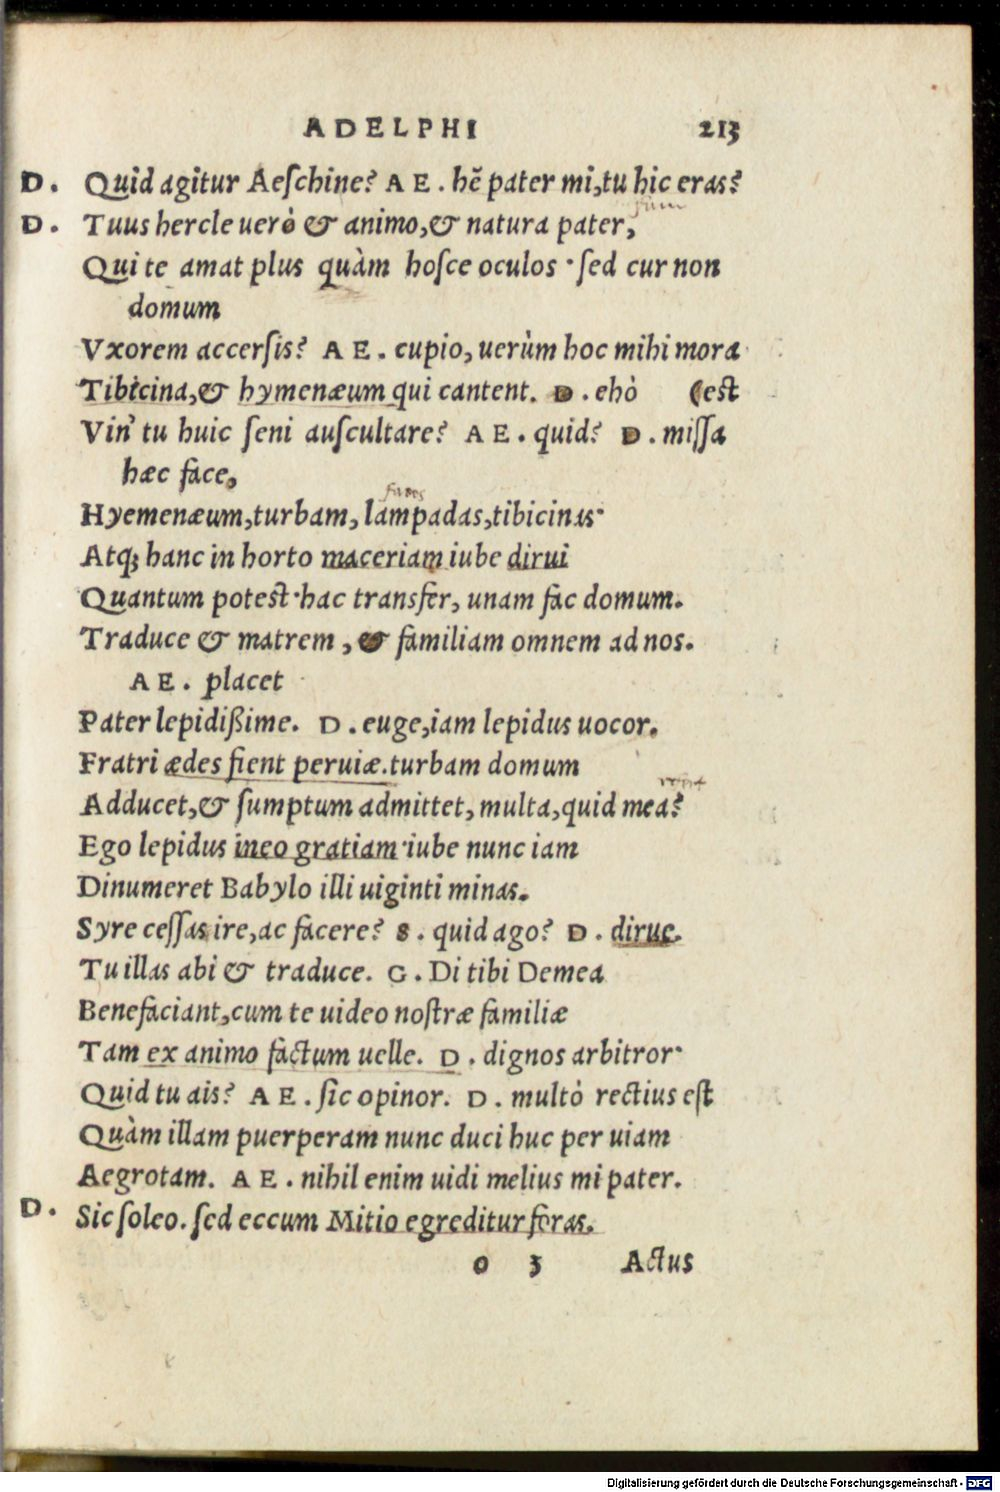 ADELPHI 213
D. Quid agitur Aeſchine? AE. hẽ pater mi, tu hic eras?
ſum
D. Tuus hercle uerò & animo, & natura pater,
Qui te amat plus quàm hoſce oculos · ſed cur non
domum
Vxorem accerſis? AE. cupio, uerùm hoc mihi mora
Tibicina, & hymenæum qui cantent. D. ehò (eſt
Vin' tu huic ſeni auſcultare? AE. quid? D. miſſa
hæc face,
faces
Hyemenæum, turbam, lampadas, tibicinas·
Atq; hanc in horto maceriam iube dirui
Quantum poteſt· hac transfer, unam fac domum.
Traduce & matrem, & familiam omnem ad nos.
AE. placet
Pater lepidißime. D. euge, iam lepidus uocor.
Fratri ædes fient peruiæ. turbam domum
Adducet, & ſumptum admittet, multa, quid mea?
Ego lepidus ineo gratiam· iube nunc iam
Dinumeret Babylo illi uiginti minas.
Syre ceſſas ire, ac facere? S. quid ago? D. dirue.
Tu illas abi & traduce. G. Di tibi Demea
Benefaciant, cum te uideo noſtræ familiæ
Tam ex animo factum uelle. D. dignos arbitror·
Quid tu ais? AE. ſic opinor. D. multò rectius eſt
Quàm illam puerperam nunc duci huc per uiam
Aegrotam. AE. nihil enim uidi melius mi pater.
D. Sic ſoleo. ſed eccum Mitio egreditur foras.
o 3 Actus
Digitalisierung gefördert durch die Deutsche Forschungsgemeinschaft - DFG